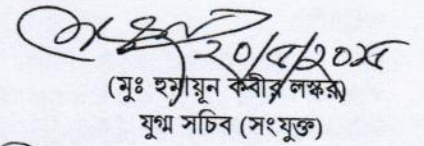 ২০/৫/২০২৫
(মুঃ হুমায়ুন কবীর লস্কর)
যুগ্ম সচিব (সংযুক্ত)